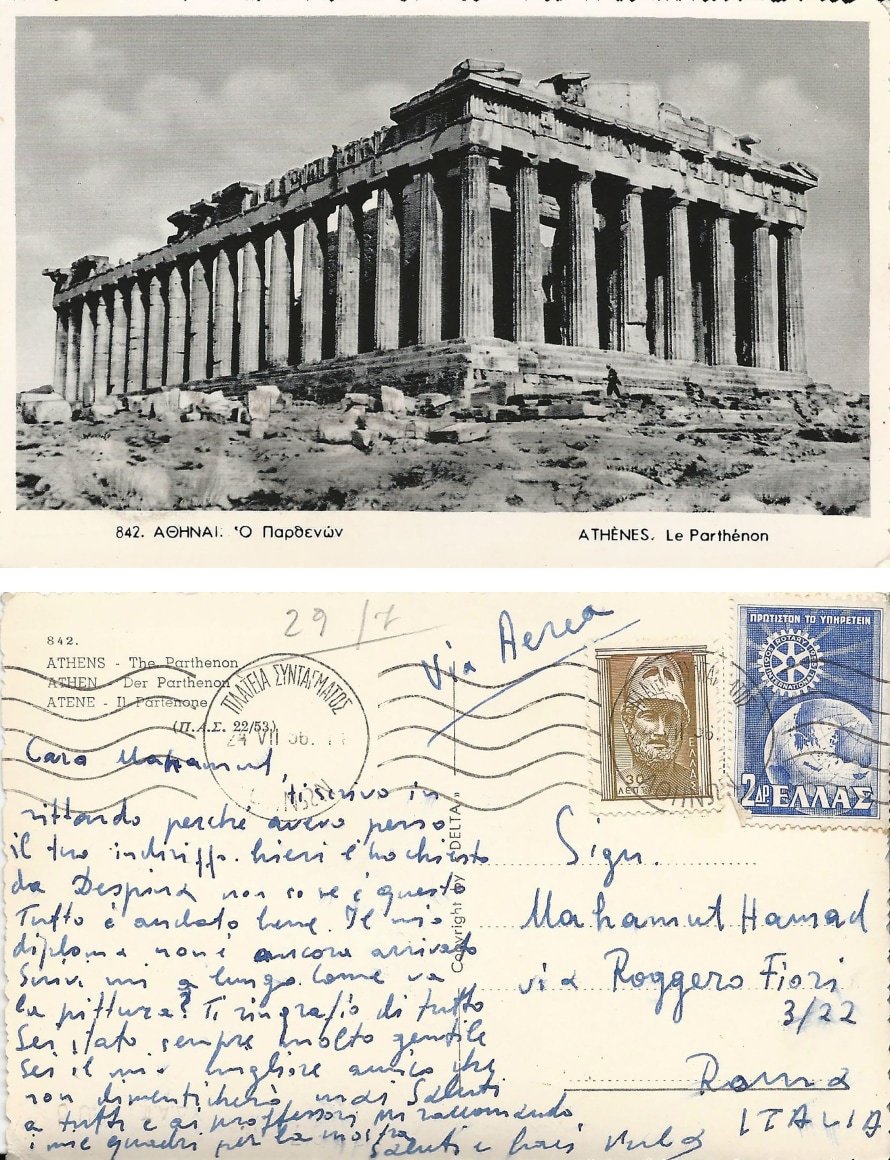 842. ΑΘΗΝΑΙ. Ὁ Παρθενών
ATHÈNES. Le Parthénon
29/7
Via Aerea
842.
ATHENS - The Parthenon
ATHEN - Der Parthenon
ATENE - Il Partenone
(Π.Α.Σ. 22/53)
ΠΛΑΤΕΙΑ ΣΥΝΤΑΓΜΑΤΟΣ
VII 56.
30
ΛΕΠΤ
ΕΛΛΑΣ
ΠΡΩΤΙΣΤΟΝ ΤΟ ΥΠΗΡΕΤΕΙΝ
ROTARY
INTERNATIONAL
2ΔΡ ΕΛΛΑΣ
Cara Mahamut,
ti scrivo in
rittardo perché avevo perso
il tuo indirizzo. hieri l'ho chiesto
da Despina non so se è questo
Tutto è andato bene. Il mio
diploma non è ancora arrivato
Scrivi mi a lungo. Come va
la pittura? Ti ringrazio di tutto
Sei stato sempre molto gentile
Sei il mio migliore amico che
non dimenticherò mai Saluti
a tutti e ai proffessori mi raccomando
i miei quadri per la mostra
Saluti e
Copyright by "DELTA"
Sign.
Mahamut Hamad
via Roggero Fiori
3/22
Roma
ITALIA